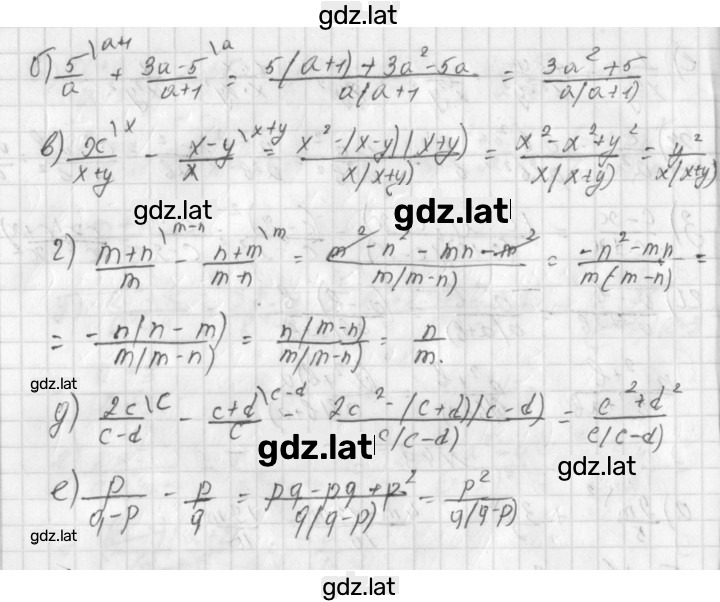 gdz.lat
б) 5/a \a+1 + (3a-5)/(a+1) \a = (5(a+1)+3a²-5a)/(a(a+1) = (3a²+5)/(a(a+1))
в) x/(x+y) \x - (x-y)/x \x+y = (x²-(x-y)(x+y))/(x(x+y)) = (x²-x²+y²)/(x(x+y)) = y²/(x(x+y))
gdz.lat gdz.lat
г) (m+n)/m \m-n - (n+m)/(m-n) \m = (m²-n²-mn-m²)/(m(m-n)) = (-n²-mn)/(m(m-n)) =
= -n(n-m)/(m(m-n)) = n(m-n)/(m(m-n)) = n/m.
gdz.lat
д) 2c/(c-d) \c - (c+d)/c \c-d = (2c²-(c+d)(c-d))/(c(c-d)) = (c²+d²)/(c(c-d))
gdz.lat gdz.lat
е) p/(q-p) - p/q = (pq-pq+p²)/(q(q-p)) = p²/(q(q-p))
gdz.lat
gdz.lat